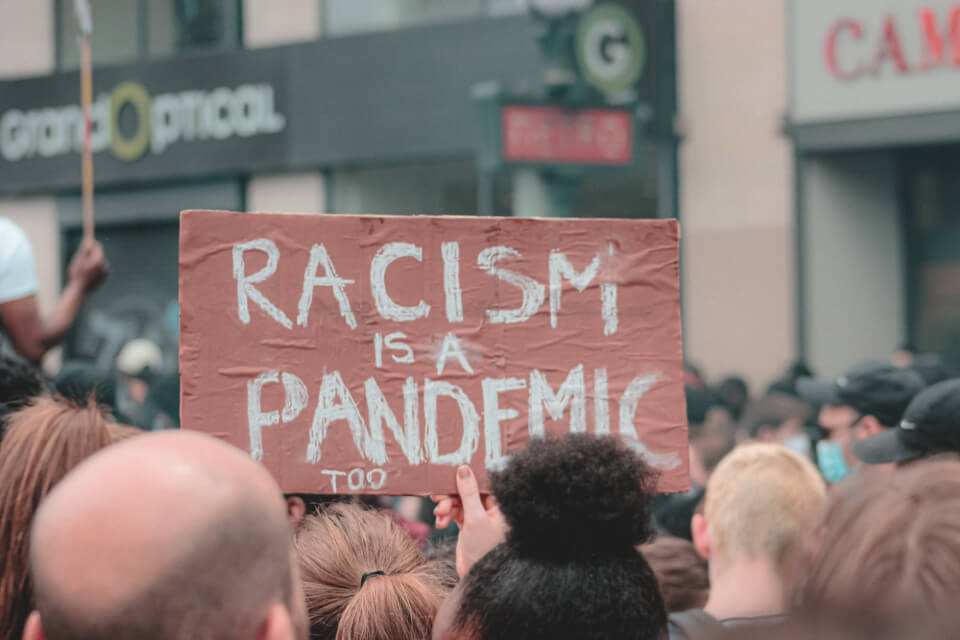 GrandOptical
G
METRO
CAM
RACISM
IS A
PANDEMIC
TOO